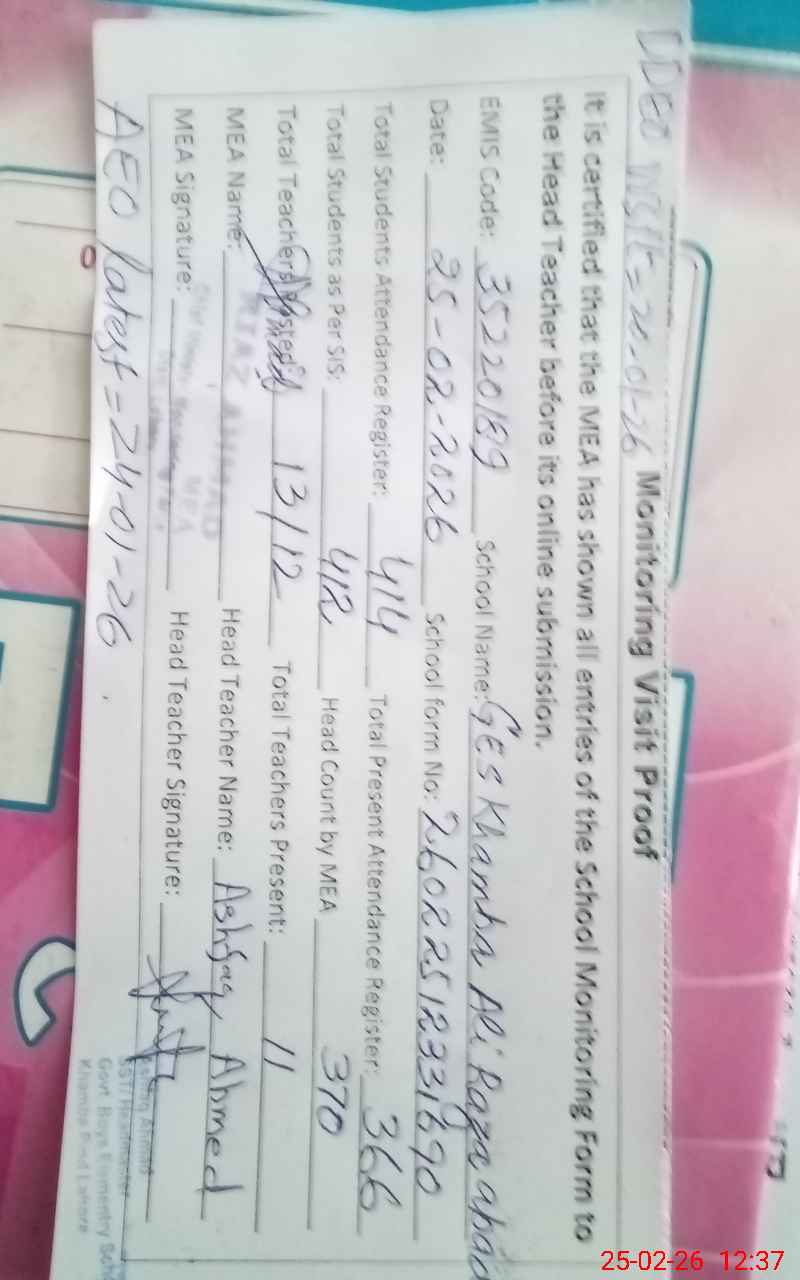 DDEO Visit = 20-01-26 Monitoring Visit Proof
It is certified that the MEA has shown all entries of the School Monitoring Form to
the Head Teacher before its online submission.
EMIS Code: 35220189 School Name: GES Khamba Ali Raza abad
Date: 25-02-2026 School form No: 26022512331690
Total Students Attendance Register: 414 Total Present Attendance Register: 366
Total Students as Per SIS: 412 Head Count by MEA 370
Total Teachers Posted: 13/12 Total Teachers Present: 11
MEA Name: RIAZ Head Teacher Name: Ashfaq Ahmed
MEA Signature: Head Teacher Signature:
MEA
Ashfaq Ahmed
SST/Headmaster
Govt. Boys Elementry
Khamba Lahore
AEO latest = 24-01-26
25-02-26 12:37